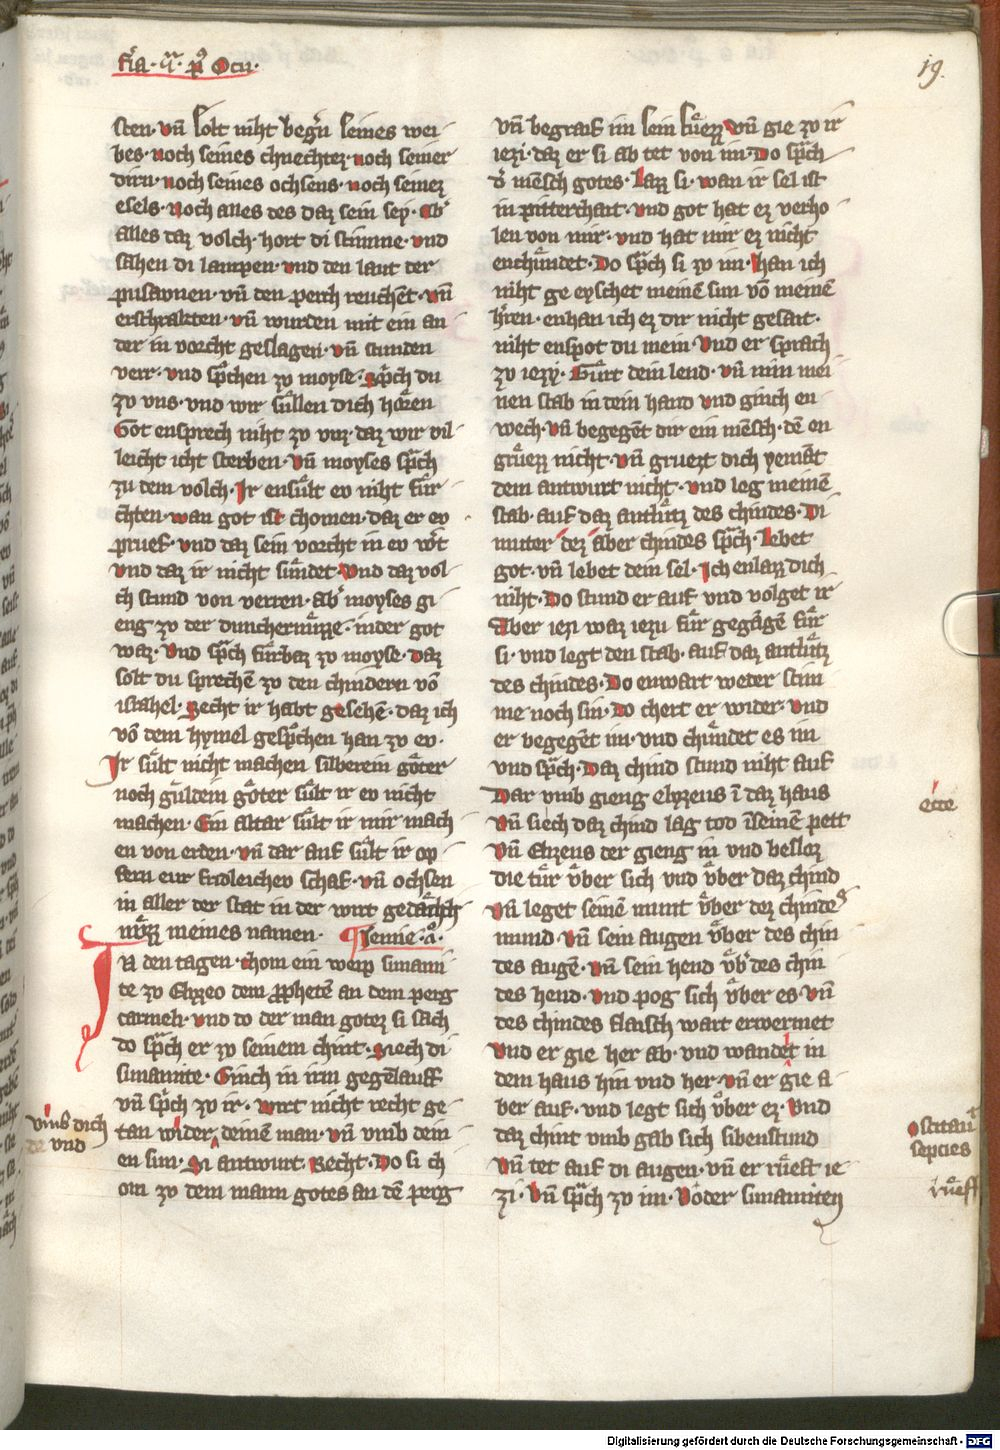 fr̄a · iiij · p̄ Ocu ·
19.
sten · vn̄ solt niht beg̓n seines wei
bes · noch seines chnechtez · noch seiner
dirn · noch seines ochsens · noch seinez
esels · Noch alles des daz sein sey · Ab̓
alles daz volch · hort di stimme · vnd
sahen di lampen · vnd den laut der
pusavnen · vn̄ den perch reuchēt · Vn̄
erschrakten · vn̄ wurden mit ein an
der in vorcht geslagen · vn̄ stunden
verr · vnd sp̓chen zv moyse · Sp̓ch du
zv vns · vnd wir sůllen dich hoͤren
Got ensprech niht zv vnz · daz wir vil
leicht icht sterben · Vn̄ moyses sp̓ch
zu dem volch · Ir ensuͤlt ev niht fuͤr
chten · wan got ist chomen · daz er ev
pruef · vnd daz sein vorcht in ev w̓t
vnd daz ir nicht suͤndet · Vnd daz vol
ch stund von verren · Ab̓ moyses gi
eng zv der dunchernuͤzze · inder got
waz · Vnd sp̓ch fuͤrbaz zv moyse · Daz
solt du sprechē zv den chindern vō
israhel · Secht ir habt gesehē · daz ich
vō dem hymel gesp̓chen han zv ev ·
Ir suͤlt nicht machen silberein goͤter
noch guldein goͤter suͤlt ir ev nicht
machen · Ein altar suͤlt ir mir mach
en von erden · vn̄ dar auf suͤlt ir op
fern eur fridleichev schaf · vn̄ ochsen
in aller der stat in der wirt gedaͤcht
nuͤzz meines namen ·
In den tagen · chom ein weip sunami
te zv Elyzeo dem pp̄hetē an dem perg
carmeli · vnd do der man gotez si sach
do sp̓ch er zv seinem chint · Siech di
sunamite · Ginch in irm gegēlauff
vn̄ sp̓ch zv ir · wirt nicht recht ge
vmb dich
de vnd
tan wider deinē man · vn̄ vmb dein
en sun · Si antwurt · Recht · Do si ch
om zv dem mann gotes an dē perg
vn̄ begraif im sein fuͤezz · Vn̄ gie zv ir
iezi · daz er si ab tet von im · Do sp̓ch
d̓ mēsch gotes · Lazz si · wan ir sel ist
in pitterchait · vnd got hat ez verho
len von mir · vnd hat mir ez nicht
enchuͤndet · Do sp̓ch si zv im · Han ich
niht ge eyschet meinē sun vō meinē
h̓ren · enhan ich ez dir nicht gesait ·
niht enspot du mein · Vnd er sprach
zv iezy · Guͤrt dein lend · vn̄ nim mei
nen stab in dein hand vnd ginch en
wech · vn̄ begegēt dir ein mēsch · dē en
gruͤezz nicht · vn̄ gruezt dich yemāt
dem antwurt nicht · vnd leg meinē
stab · auf daz antluͤtz des chindes · Di
muter dez aber chindes sp̓ch · Lebet
got · vn̄ lebet dein sel · Ich enlazz dich
niht · Do stund er auf vnd volget ir
Aber iezi waz iezu fuͤr gegāgē fuͤr
si · vnd legt den stab · auf daz antluͤtz
des chindes · Do enwart weder stim
me noch sin · do chert er wider · vnd
er begegēt im · vnd chuͤndet es im
vnd sp̓ch · Daz chind stund niht auf
Dar vmb gieng elyzeus ī daz haus
ecce
vn̄ siech daz chind lag tod ī seinē pett
Vn̄ Elyzeus der gieng in vnd besloz
die tuͤr vͤber sich vnd vͤber daz chind
Vn̄ leget seinē munt vͤber dez chindes
mund · vn̄ sein augen vͤber des chin
des augē · vn̄ sein hend vͤb̓ des chin
des hend · vnd pog sich vͤber es · Vn̄
des chindes flaisch wart erwermet
Vnd er gie her ab · vnd wandelt in
dem haus hin vnd her · vn̄ er gie a
ber auf · vnd legt sich vͤber ez · Vnd
septies
daz chint vmb gab sich sibenstund
Vn̄ tet auf di augen · vn̄ er ruͤeft ie
ruͤeff
zi · Vn̄ sp̓ch zv im · Voder sunamiten
Digitalisierung gefördert durch die Deutsche Forschungsgemeinschaft - DFG